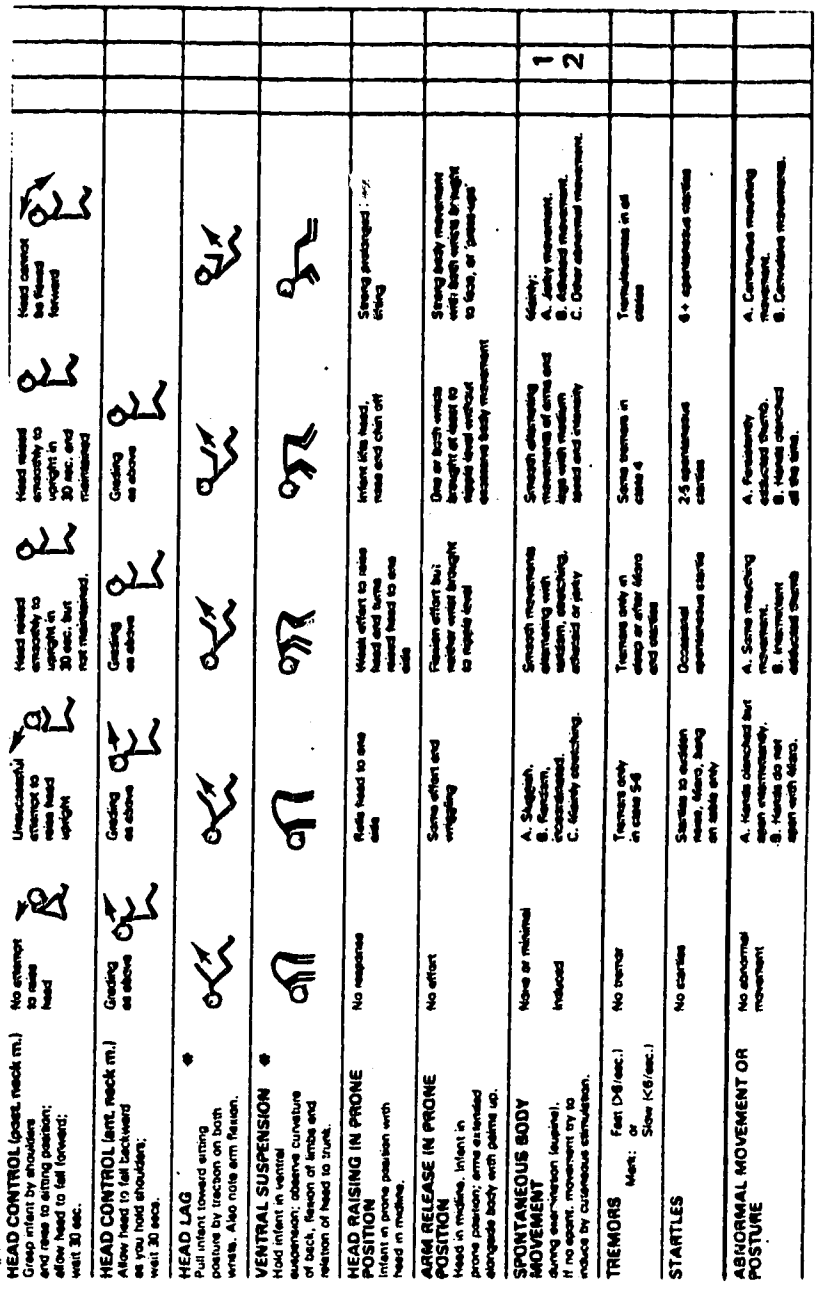 HEAD CONTROL (post. neck m.)
Grasp infant by shoulders
and raise to sitting position;
allow head to fall forward;
wait 30 sec.
No attempt
to raise
head
Unsuccessful
attempt to
raise head
upright
Head raised
smoothly to
upright in
30 sec. but
not maintained.
Head raised
smoothly to
upright in
30 sec. and
maintained
Head cannot
be flexed
forward
HEAD CONTROL (ant. neck m.)
Allow head to fall backward
as you hold shoulders;
wait 30 secs.
Grading
as above
Grading
as above
Grading
as above
Grading
as above
HEAD LAG *
Pull infant toward sitting
posture by traction on both
wrists. Also note arm flexion.
VENTRAL SUSPENSION *
Hold infant in ventral
suspension; observe curvature
of back, flexion of limbs and
relation of head to trunk.
HEAD RAISING IN PRONE
POSITION
Infant in prone position with
head in midline.
No response
Rolls head to one
side
Weak effort to raise
head and turns
raised head to one
side
Infant lifts head,
nose and chin off
Strong prolonged
lifting
ARM RELEASE IN PRONE
POSITION
Head in midline. Infant in
prone position; arms extended
alongside body with palms up.
No effort
Some effort and
wriggling
Flexion effort but
neither wrist brought
to nipple level
One or both wrists
brought at least to
nipple level without
excessive body movement
Strong body movement
with both wrists brought
to face, or 'press-ups'
SPONTANEOUS BODY
MOVEMENT
during examination (supine).
If no spont. movement try to
induce by cutaneous stimulation.
None or minimal
Induced
A. Sluggish.
B. Random,
incoordinated.
C. Mainly stretching.
Smooth movements
alternating with
random, stretching,
athetoid or jerky
Smooth alternating
movements of arms and
legs with medium
speed and intensity
Mainly:
A. Jerky movement.
B. Athetoid movement.
C. Other abnormal movement.
1
2
TREMORS
Mark:
Fast (>6/sec.)
or
Slow (<6/sec.)
No tremor
Tremors only
in state 5-6
Tremors only in
sleep or after Moro
and startles
Some tremors in
state 4
Tremulousness in all
states
STARTLES
No startles
Startles to sudden
noise, Moro, bang
on table only
Occasional
spontaneous startle
2-5 spontaneous
startles
6+ spontaneous startles
ABNORMAL MOVEMENT OR
POSTURE
No abnormal
movement
A. Hands clenched but
open intermittently.
B. Hands do not
open with Moro.
A. Some mouthing
movement.
B. Intermittent
adducted thumb
A. Persistently
adducted thumb.
B. Hands clenched
all the time.
A. Continuous mouthing
movement.
B. Convulsive movements.